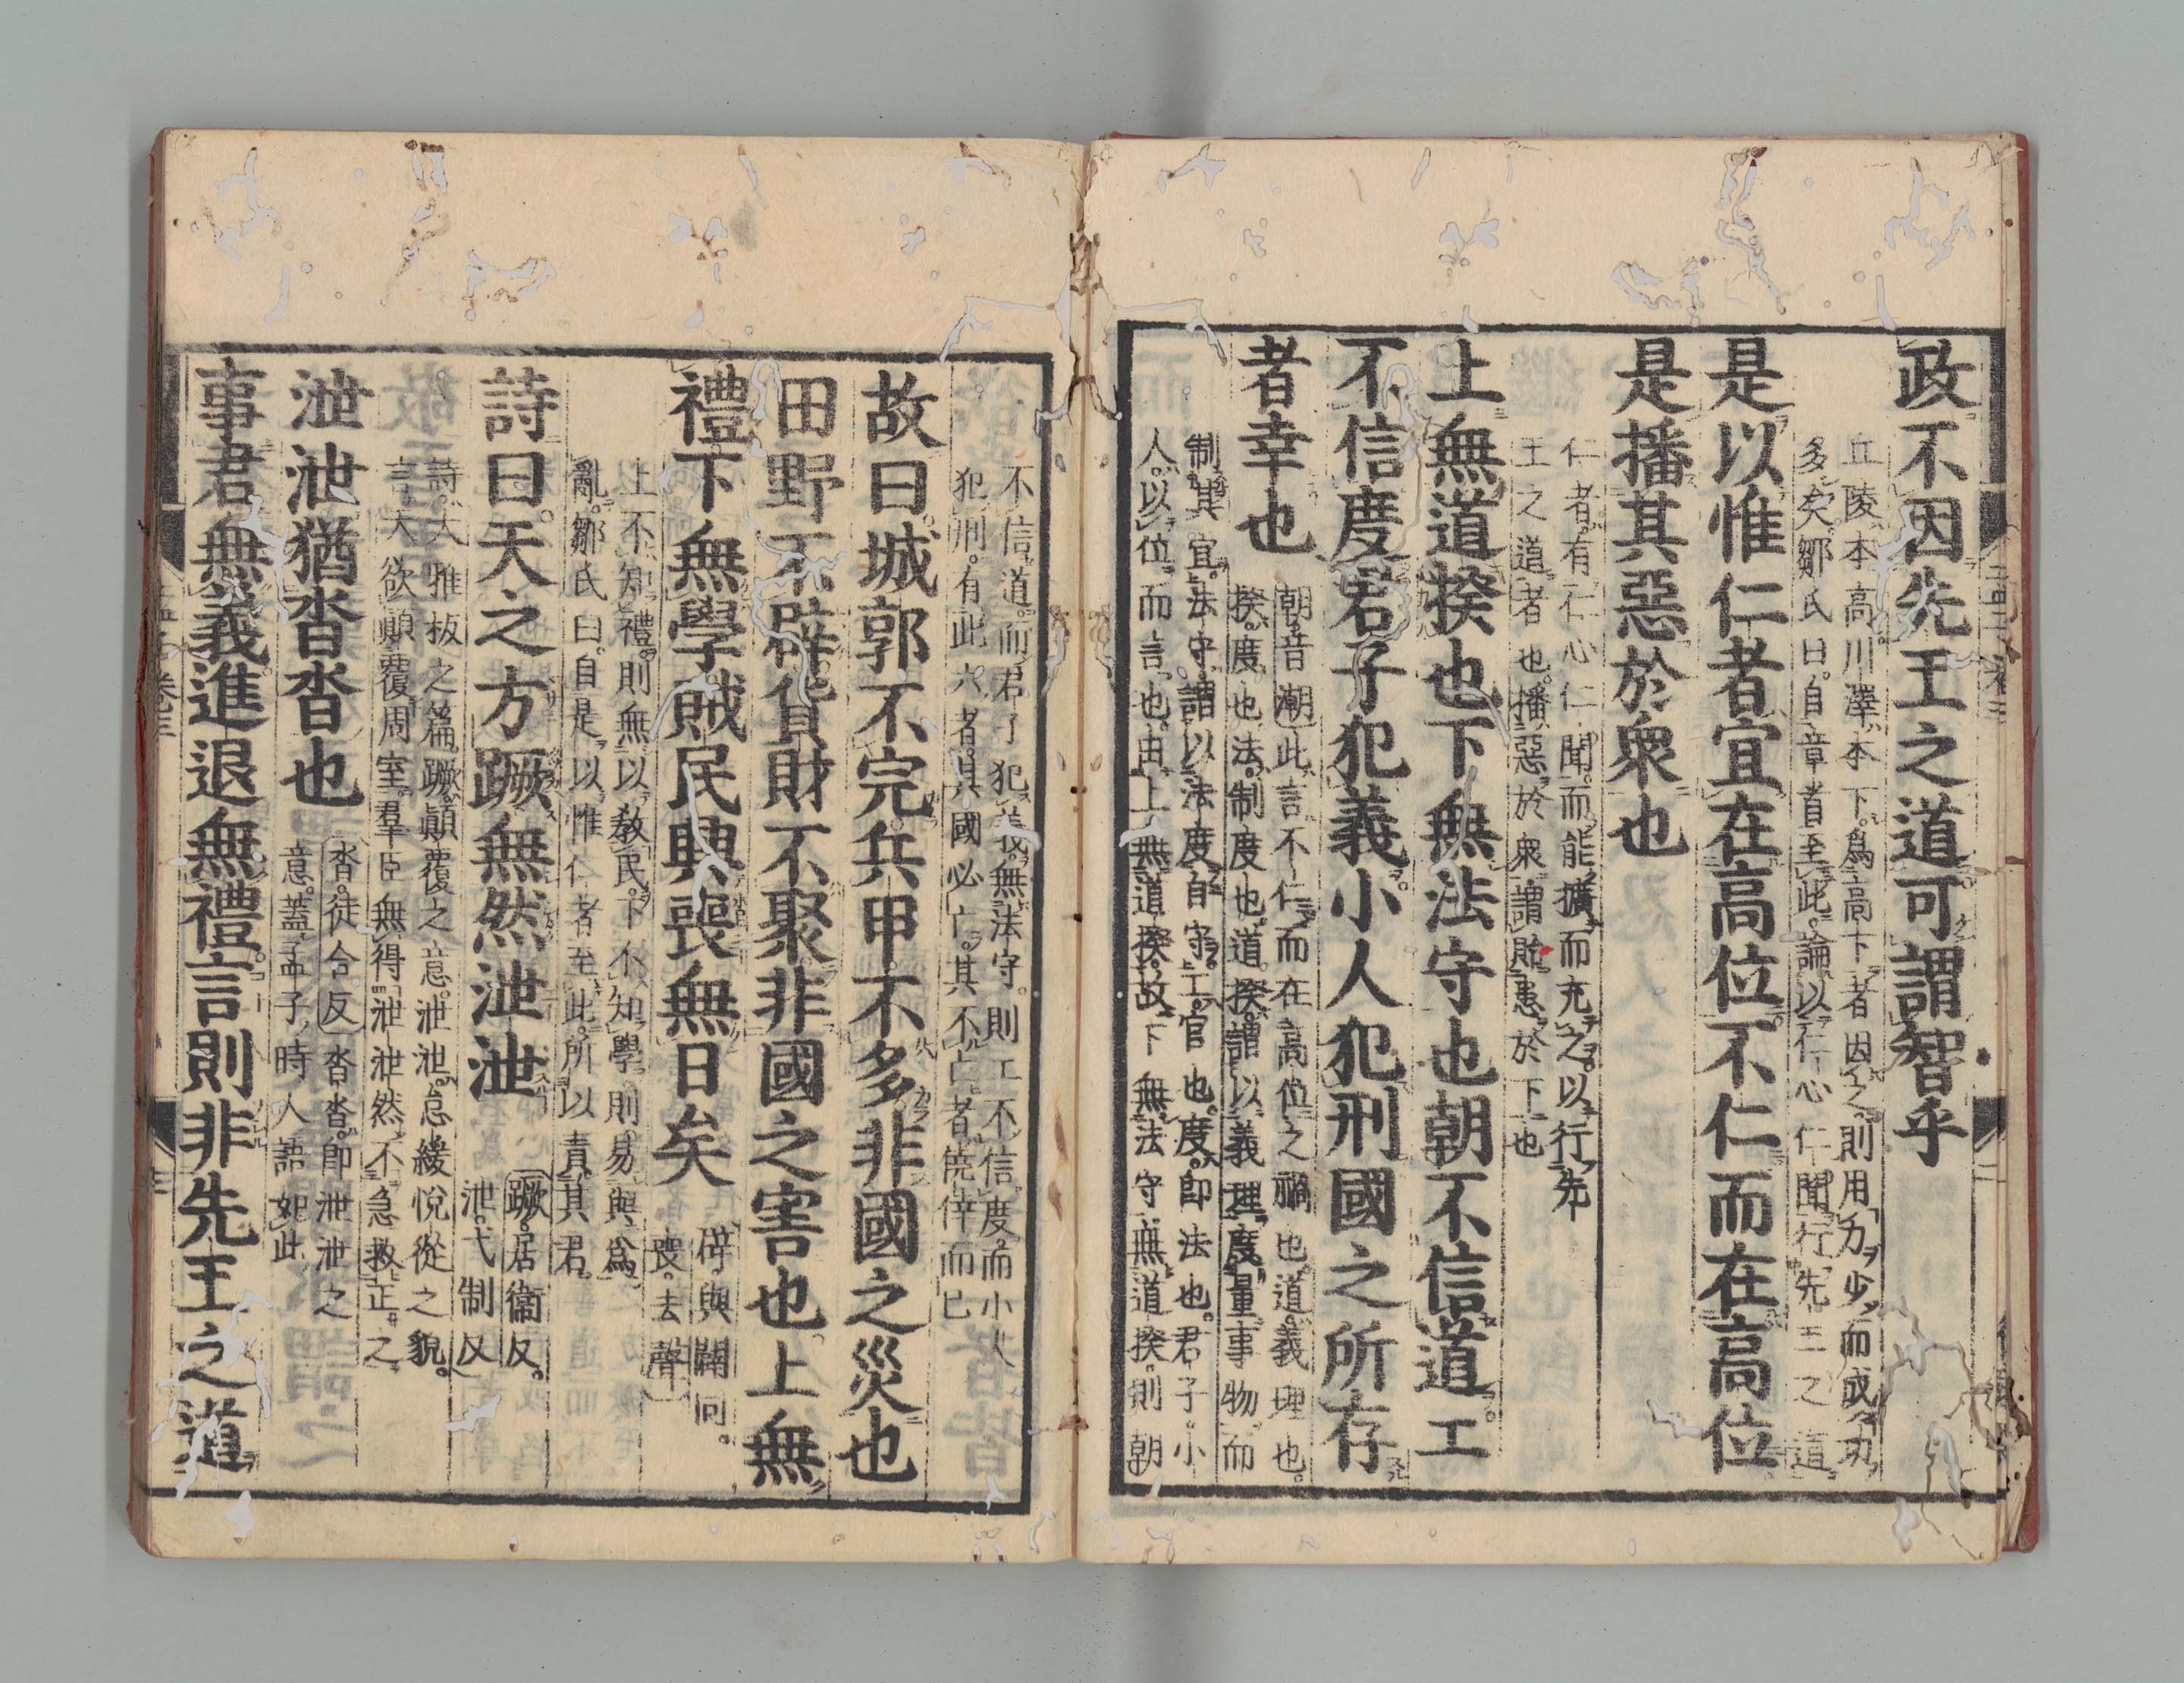 政不因先王之道可謂智乎
丘陵本高川澤本下爲高下者因之則用力少而成功
多矣鄒氏曰自章首至此論以仁心仁聞行先王之道
是以惟仁者宜在高位不仁而在高位
是播其惡於衆也
仁者有仁心仁聞而能擴而充之以行先
王之道者也播惡於衆謂貽患於下也
上無道揆也下無法守也朝不信道工
不信度君子犯義小人犯刑國之所存
者幸也
朝音潮此言不仁而在高位之禍也道義理也
揆度也法制度也道揆謂以義理度量事物而
制其宜法守謂以法度自守工官也度即法也君子小
人以位而言也由上無道揆故下無法守無道揆則朝
不信道而君子犯義無法守則工不信度而小人
犯刑有此六者其國必亡其不亡者僥倖而已
故曰城郭不完兵甲不多非國之災也
田野不辟貨財不聚非國之害也上無
禮下無學賊民興喪無日矣
辟與闢同
喪去聲
上不知禮則無以教民下不知學則易與爲
亂鄒氏曰自是以惟仁者至此所以責其君
詩曰天之方蹶無然泄泄
蹶居衞反
泄弋制反
詩大雅板之篇蹶顚覆之意泄泄怠緩悅從之貌
言天欲顚覆周室羣臣無得泄泄然不急救正之
泄泄猶沓沓也
沓徒合反沓沓即泄泄之
意蓋孟子時人語如此
事君無義進退無禮言則非先王之道